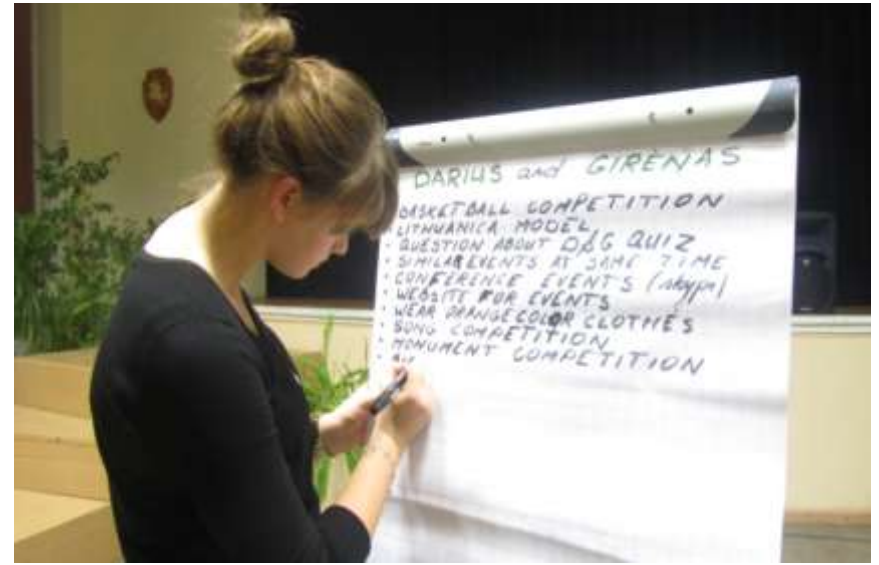 DARIUS and GIRĖNAS
· BASKETBALL COMPETITION
· LITHUANICA MODEL
· QUESTION ABOUT D&G QUIZ
· SIMILAR EVENTS AT SAME TIME
· CONFERENCE EVENTS (skype)
· WEBSITE FOR EVENTS
· WEAR ORANGE COLOR CLOTHES
· SONG COMPETITION
· MONUMENT COMPETITION